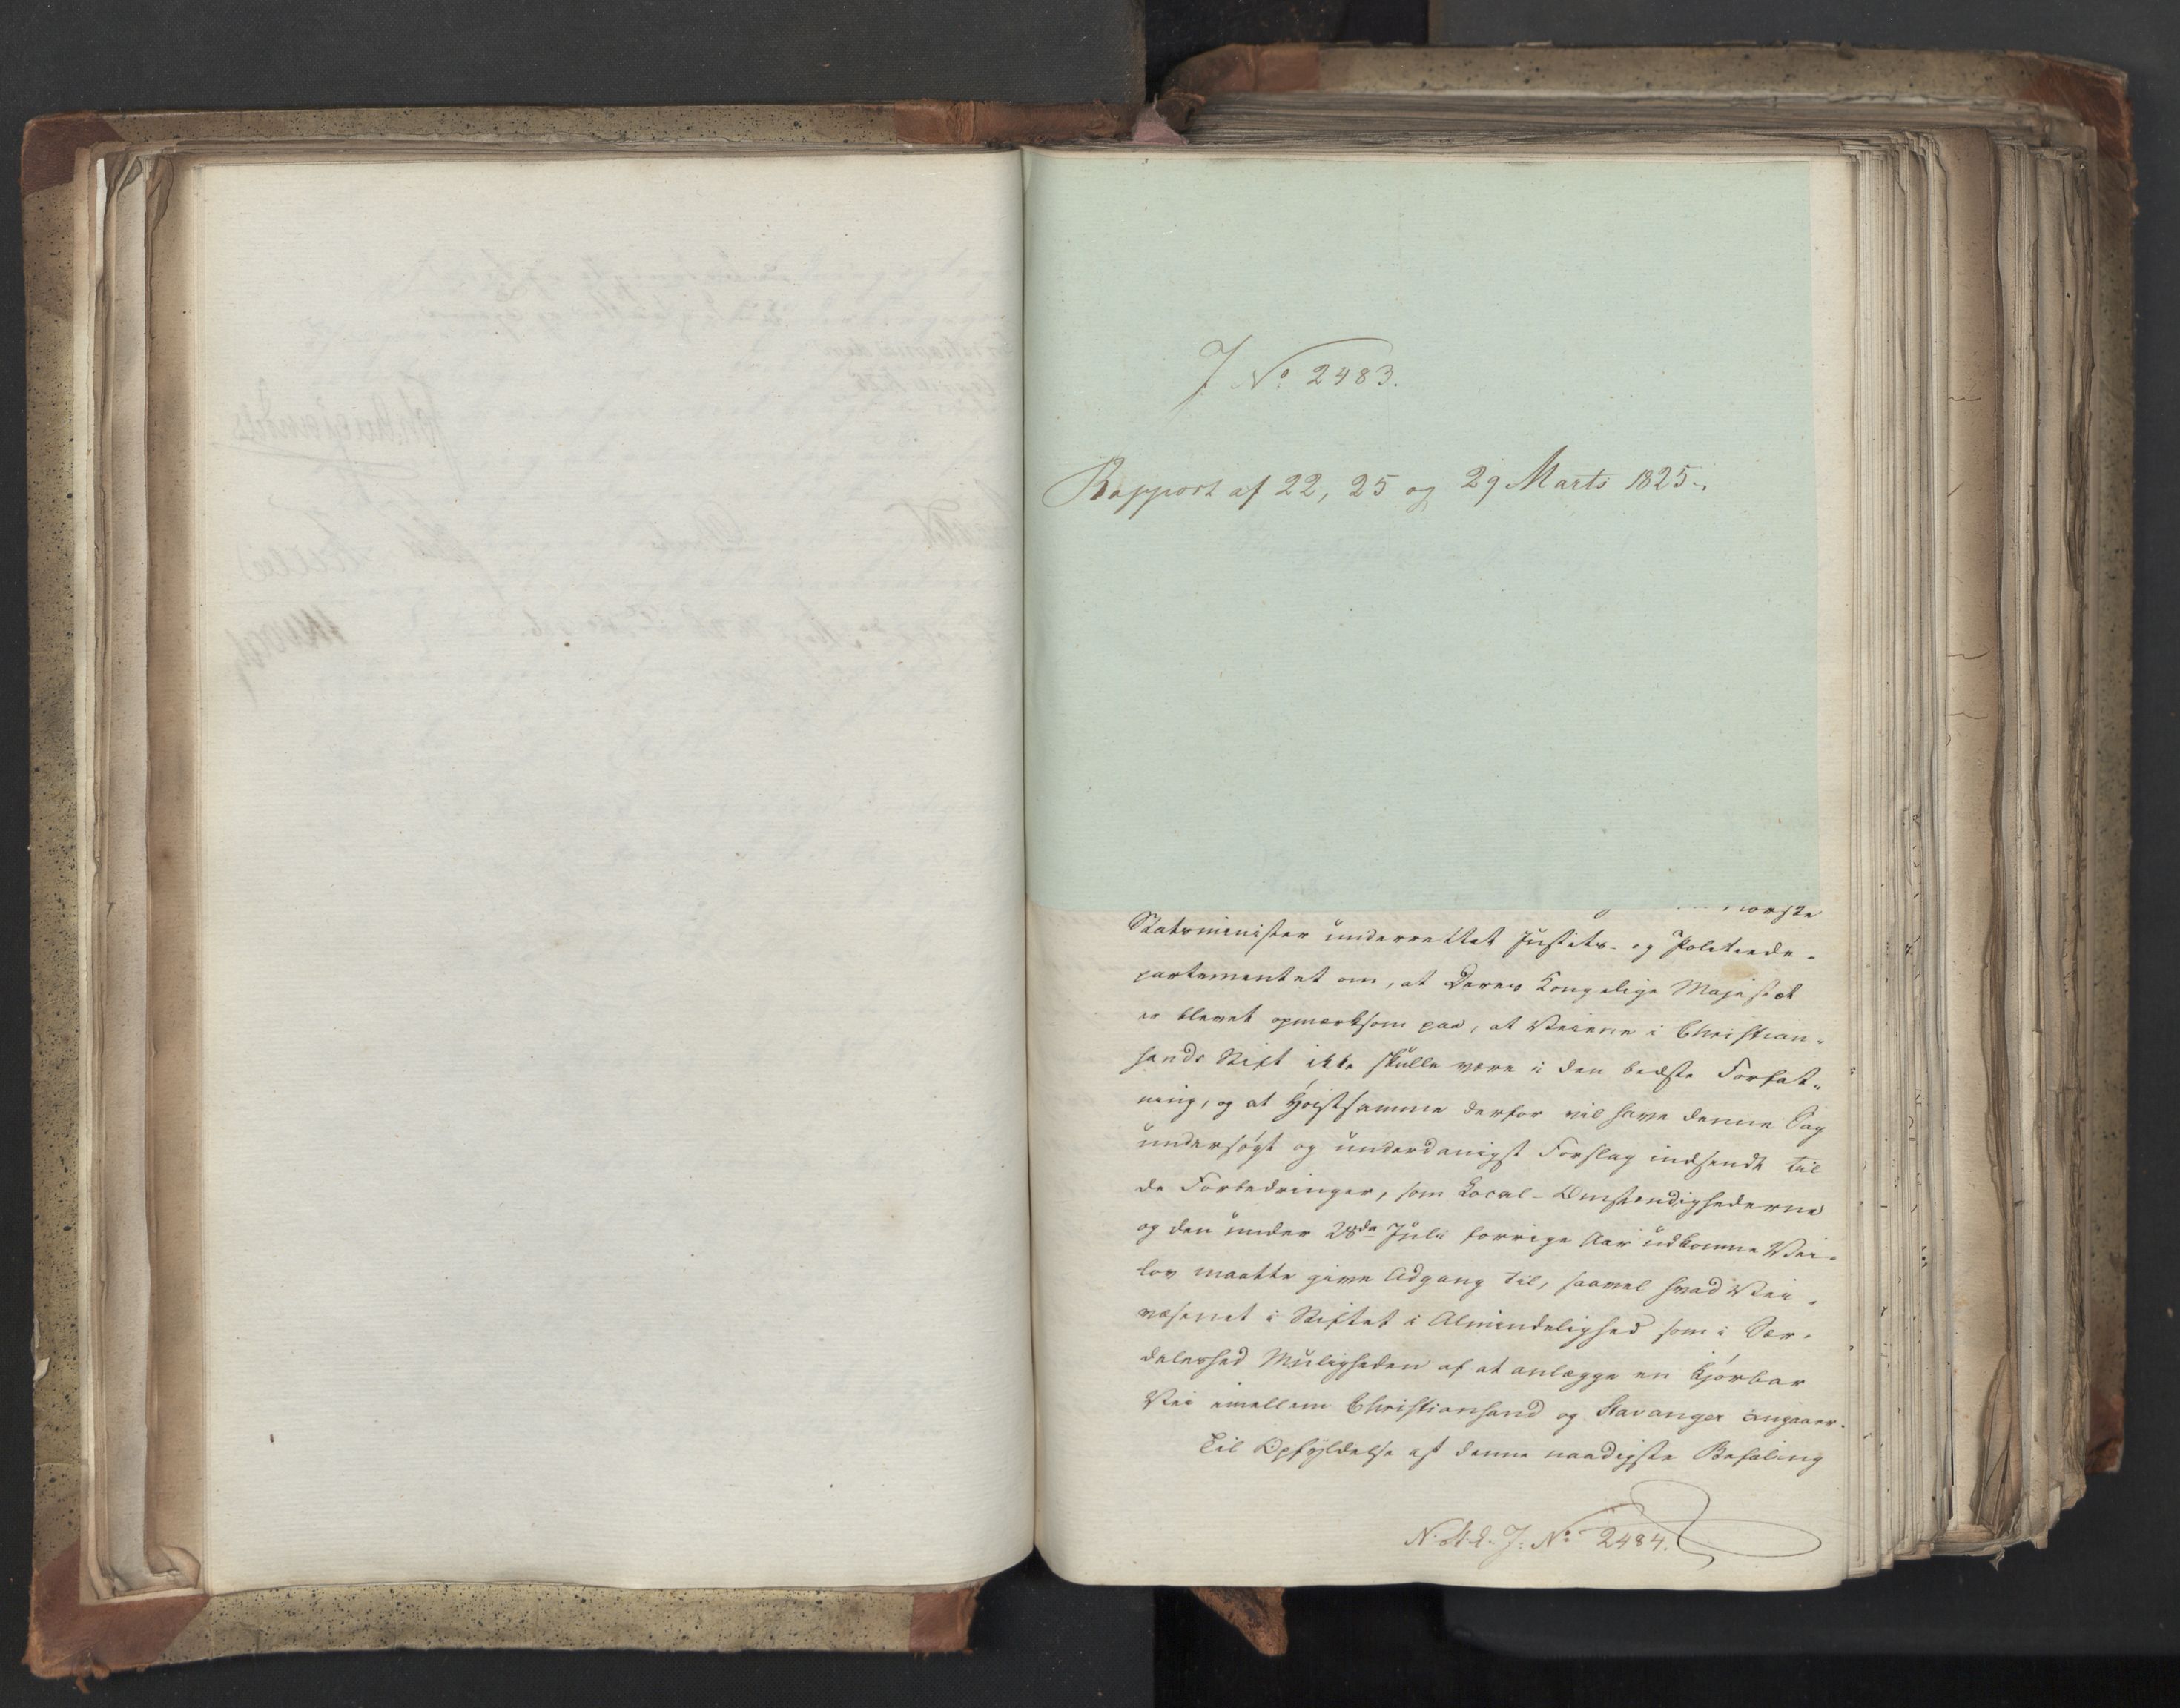 J No 2483.
Rapport af 22, 25 og 29 Marts 1825.
norske
Statsminister underrettet Justits- og Politiede-
partementet om, at Deres Kongelige Majestæt
er blevet opmærksom paa, at Veiene i Christian-
sands Stift ikke skulle være i den bedste Forfat-
ning, og at Høistsamme derfor vil have denne Sag
undersøgt og underdanigst Forslag indsendt til
de Forbedringer, som Local-Omstændighederne
og den under 28de Juli forrige Aar udkomne Vei-
lov maatte give Adgang til, saavel hvad Vei-
væsenet i Stiftet i Almindelighed som i Sær-
deleshed Muligheden af at anlægge en kjørbar
Vei imellem Christiansand og Stavanger angaaer.
Til Opfyldelse af denne naadigste Befaling
J: No 2484.